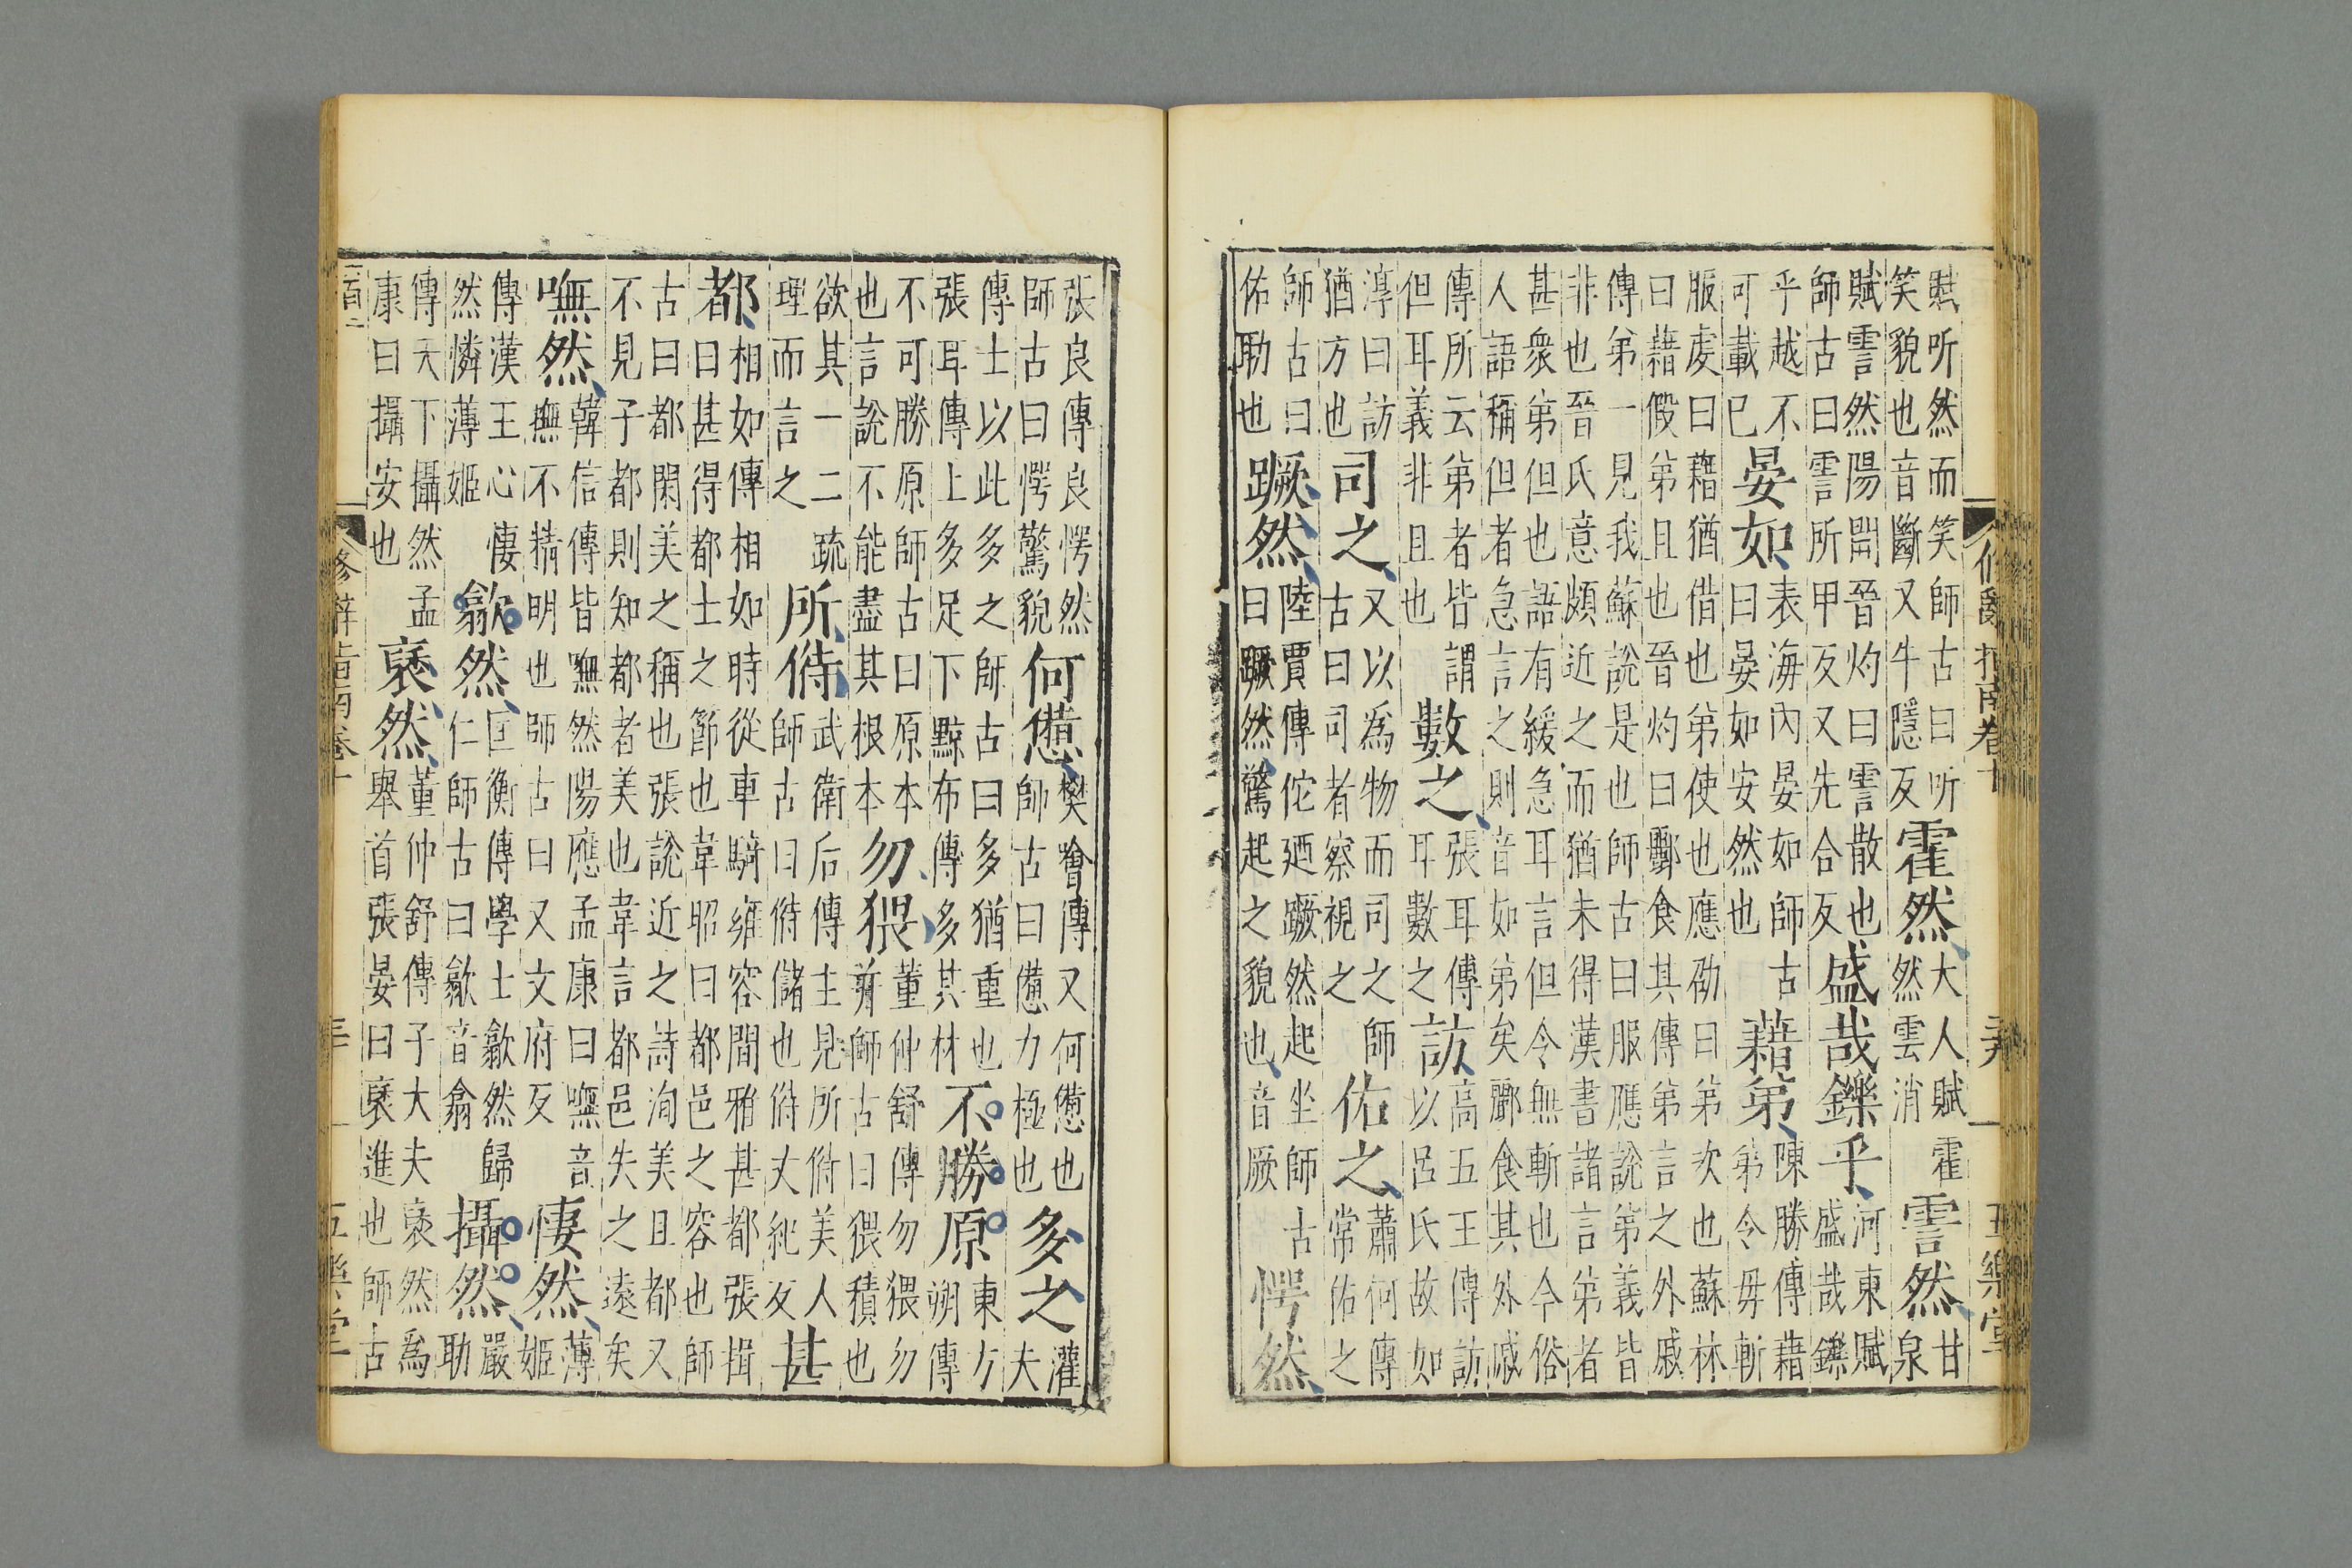 修辭指南卷十 五樂堂
賦听然而笑師古曰听笑貌也音斷又牛隱反霍然大人賦霍然雲消霅然甘泉
賦霅然陽開晉灼曰霅散也師古曰霅所甲反又先合反盛哉鑠乎河東賦盛哉鑠
乎越不可載已晏如表海內晏如師古曰晏如安然也藉第陳勝傳藉第令毋斬
服虔曰藉猶借也第使也應劭曰第次也蘇林曰藉假第且也晉灼曰酈食其傳第言之外戚
傳弟一見我蘇說是也師古曰服應說第義皆非也晉氏意頗近之而猶未得漢書諸言第者
甚衆第但也語有緩急耳言但令無斬也今俗人語稱但者急言之則音如弟矣酈食其外戚
傳所云第者皆謂但耳義非且也數之張耳傳耳數之訪高五王傳訪以呂氏故如
淳曰訪猶方也司之又以爲物而司之師古曰司者察視之佑之蕭何傳常佑之
師古曰佑助也蹶然陸賈傳佗廼蹶然起坐師古曰蹶然驚起之貌也音厥愕然
張良傳良愕然師古曰愕驚貌何憊樊噲傳又何憊也師古曰憊力極也多之灌夫
傳士以此多之師古曰多猶重也張耳傳上多足下黥布傳多其材不勝原東方朔傳
不可勝原師古曰原本也言說不能盡其根本勿猥董仲舒傳勿猥勿幷師古曰猥積也
欲其一二疏理而言之所偫武衛后傳主見所偫美人師古曰偫儲也偫丈紀反甚
都相如傳相如時從車騎雍容閒雅甚都張揖曰甚得都士之節也韋昭曰都邑之容也師
古曰都閑美之稱也張說近之詩洵美且都又不見子都則知都者美也韋言都邑失之遠矣
嘸然韓信傳皆嘸然陽應孟康曰嘸音撫不精明也師古曰又文府反悽然薄姬
傳漢王心悽然憐薄姬歙然匡衡傳學士歙然歸仁師古曰歙音翕攝然嚴助
傳天下攝然孟康曰攝安也褎然董仲舒傳子大夫褎然爲舉首張晏曰褎進也師古
修辭指南卷十 五樂堂